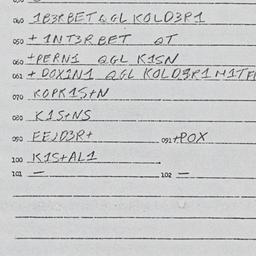 040 1B3RBET QGL KOLD3P1
050 + 1NT3RBET QT
060 +PERN1 QGL K1SN
061 + DOX1N1 QGL KOLD3R1 M1TE
070 KOPK1S+N
080 K1S+NS
090 EEJD3R+ 091 +POX
100 K1S+AL1
101 — 102 —